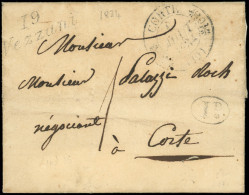 19
Vezzani
1836
Monsieur
Monsieur Palazzi
négociant
à Corte
1 D.